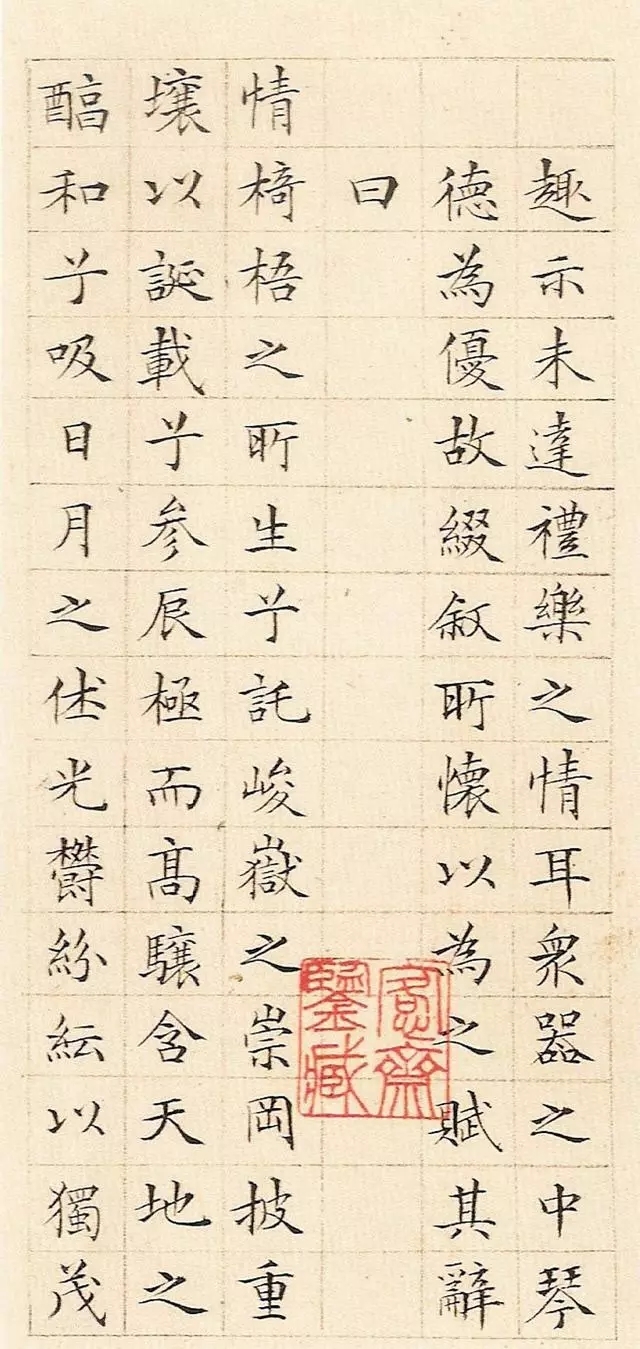 趣示未達禮樂之情耳衆器之中琴
德為優故綴敘所懷以為之賦其辭
曰
情椅梧之所生兮託峻嶽之崇岡披重
壤以誕載兮參辰極而高驤含天地之
醕和兮吸日月之休光鬱紛紜以獨茂
愙齋鑒藏